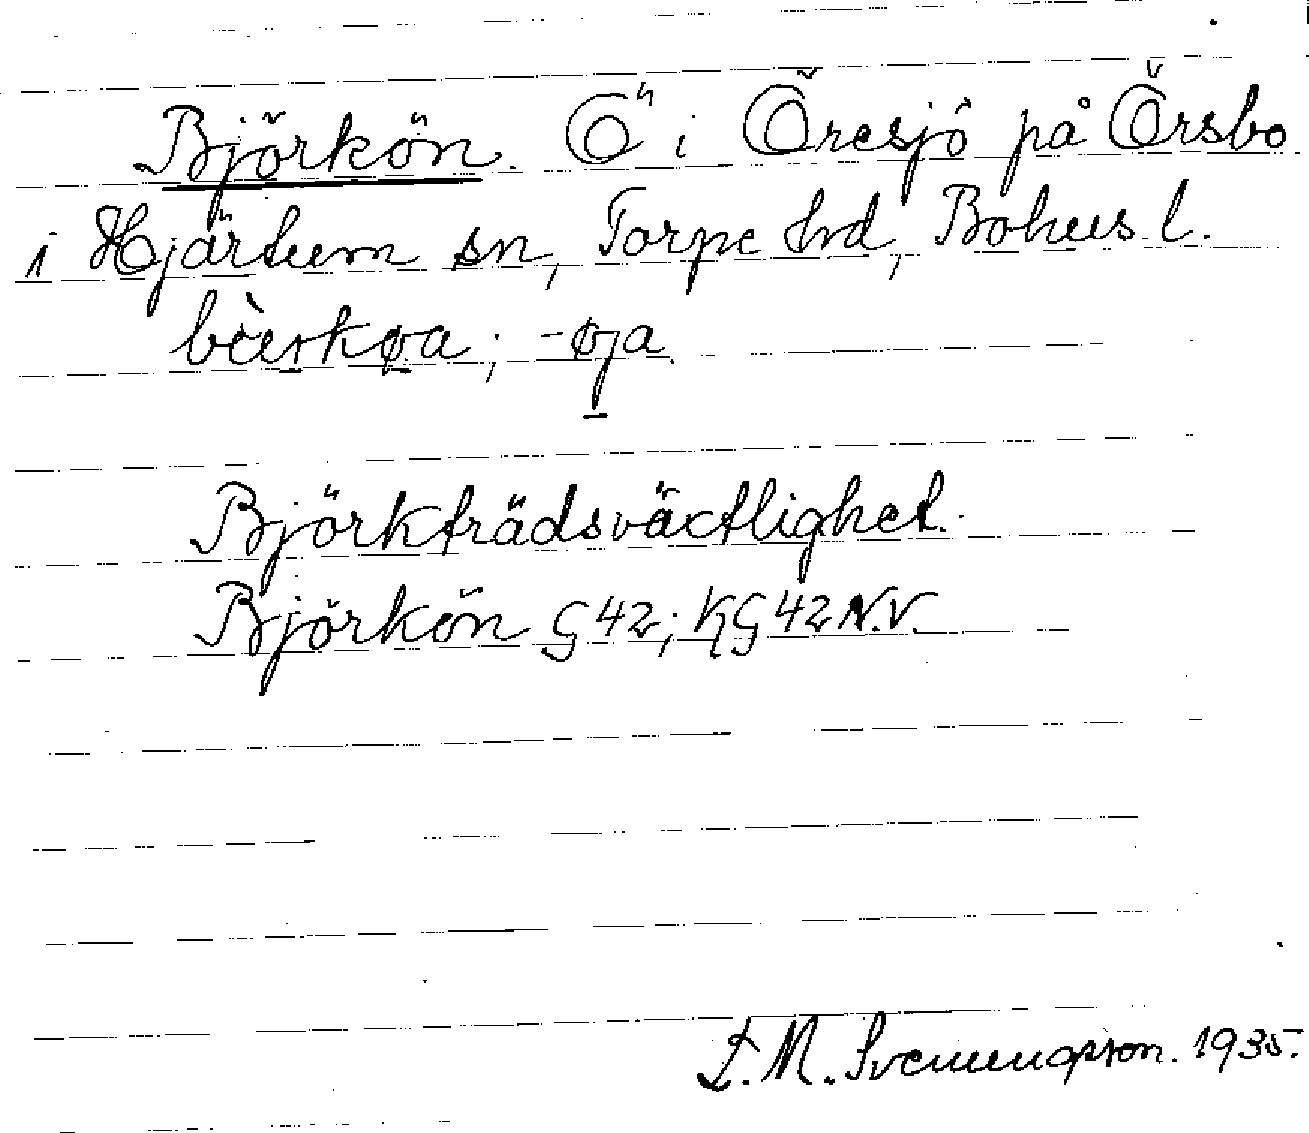 Björkön. Ö i Öresjö på Örsbo
i Hjärtum sn, Torpe hd, Bohus l.
bèærkøa; -øja
Björkträdsväxtlighet.
Björkön G 42; KG 42 N.V.
T. M. Svenungsson. 1935.